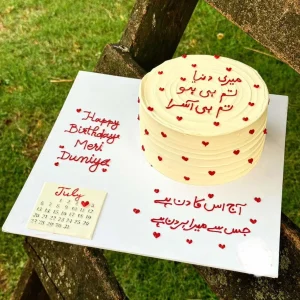 میری دنیا
تم ہی ہو
تم ہی آسرا
Happy
Birthday
Meri
Duniya
July
آج اس کا دن ہے
جس سے میرا ہر دن ہے